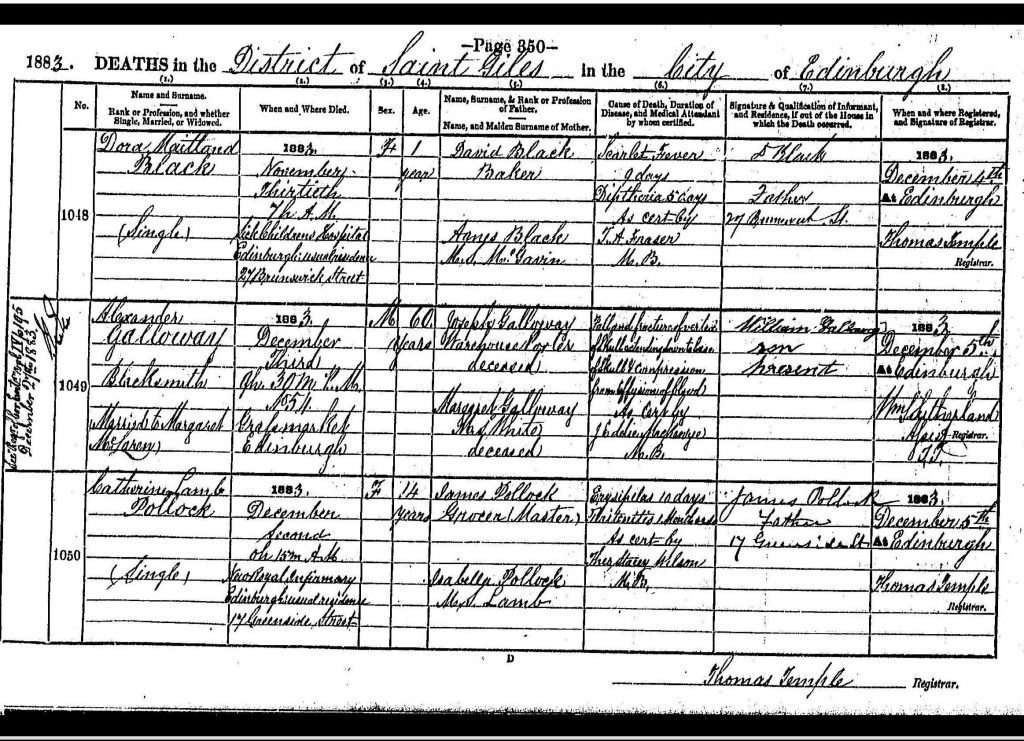 —Page 350—
1883. DEATHS in the District of Saint Giles in the City of Edinburgh
(1.) (2.) (3.) (4.) (5.) (6.) (7.) (8.)
No.
Name and Surname.
Rank or Profession, and whether Single, Married, or Widowed.
When and Where Died.
Sex.
Age.
Name, Surname, & Rank or Profession of Father.
Name, and Maiden Surname of Mother.
Cause of Death, Duration of Disease, and Medical Attendant by whom certified.
Signature & Qualification of Informant, and Residence, if out of the House in which the Death occurred.
When and where Registered, and Signature of Registrar.
1048
Dora Maitland
Black
(Single)
1883.
November
Thirtieth
7h A.M.
Sick Childrens Hospital
Edinburgh usual residence
27 Brunswick Street
F
1
year
David Black
Baker
Agnes Black
M.S. McGavin
Scarlet Fever
9 days
Diptheria 5 days
As cert by
T. A. Fraser
M.B.
D Black
Father
27 Brunswick St.
1883.
December 4th
At Edinburgh
Thomas Temple
Registrar.
December 27th 1883
1049
Alexander
Galloway
Blacksmith
Married to Margaret
McLaren)
1883.
December
Third
9h. 30m P.M.
No 54
Grassmarket
Edinburgh
M
60
years
Joseph Galloway
Warehouse Porter
deceased
Margaret Galloway
M.S. White
deceased
Fall and fracture of vertex
of Skull extending down to base
of Skull & Compression
from Effusion of Blood
As Cert by
M.B.
William Galloway
son
present
1883.
December 5th
At Edinburgh
Wm Sutherland
Registrar.
1050
Catherine Lamb
Pollock
(Single)
1883.
December
Second
0h 15m A.M.
New Royal Infirmary
Edinburgh usual residence
17 Greenside Street
F
14
years
James Pollock
Grocer (Master)
Isabella Pollock
M.S. Lamb
Erysipelas 10 days
As cert by
Stacey Wilson
M.B.
James Pollock
Father
17 Greenside St
1883.
December 5th
At Edinburgh
Thomas Temple
Registrar.
D
Thomas Temple Registrar.